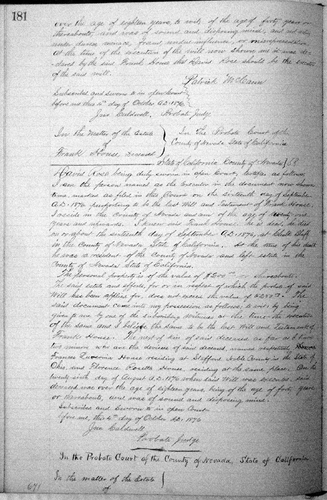 181
over the age of eighteen years, to wit, of the age of forty years or
thereabouts, and was of sound and disposing mind, and not acting
under duress, menace, fraud, undue influence, or misrepresentation
at the time of the execution of the will now shown me it was in-
tended by the said Frank House that Davis Rose should be the executor
of the said will.
Patrick McShann
Subscribed and sworn to in open Court
before me this 6th day of October A.D. 1876,
Jno. Caldwell, Probate Judge.
In the Matter of the Estate
of
Frank House, deceased
In the Probate Court of the
County of Nevada, State of California
State of California County of Nevada } SS
Davis Rose being duly sworn in open Court, testifies as follows,
I am the person named as the Executor in the document now shown
me, marked as filed in this Court on the sixteenth day of September
A.D. 1876 purporting to be the last Will and Testament of Frank House.
I reside in the County of Nevada and am of the age of twenty one
years and upwards. I knew said Frank House. He is dec. He died
on or about the day of September A.D. 1876, at
in the County of Nevada, State of California. At the time of his death
he was a resident of the County of Nevada and left estate in the
County of Nevada State of California.
The personal property is of the value of thereabouts.
The said estate and effects, for or in respect of which the probate of said
Will has been applied for, does not exceed the value of The
said document came into my possession as follows, it was by being
given to me by one of the subscribing witnesses at the time of the execution
of the same and I believe the same to be the last Will and Testament of
Frank House. The next of kin of said deceased as far as known
to
Frances House residing at in the State of
Ohio, and Florence House residing at the same place. On the
twenty sixth day of August A.D. 1876 when said Will was executed, said
deceased was over the age of eighteen years, being of the age of forty years
or thereabouts, and was of sound and disposing mind.
Subscribed and Sworn to in open Court
before me, this 6th day of October A.D. 1876
Jno. Caldwell,
Probate Judge
In the Probate Court of the County of Nevada, State of California
In the matter of the Estate
of